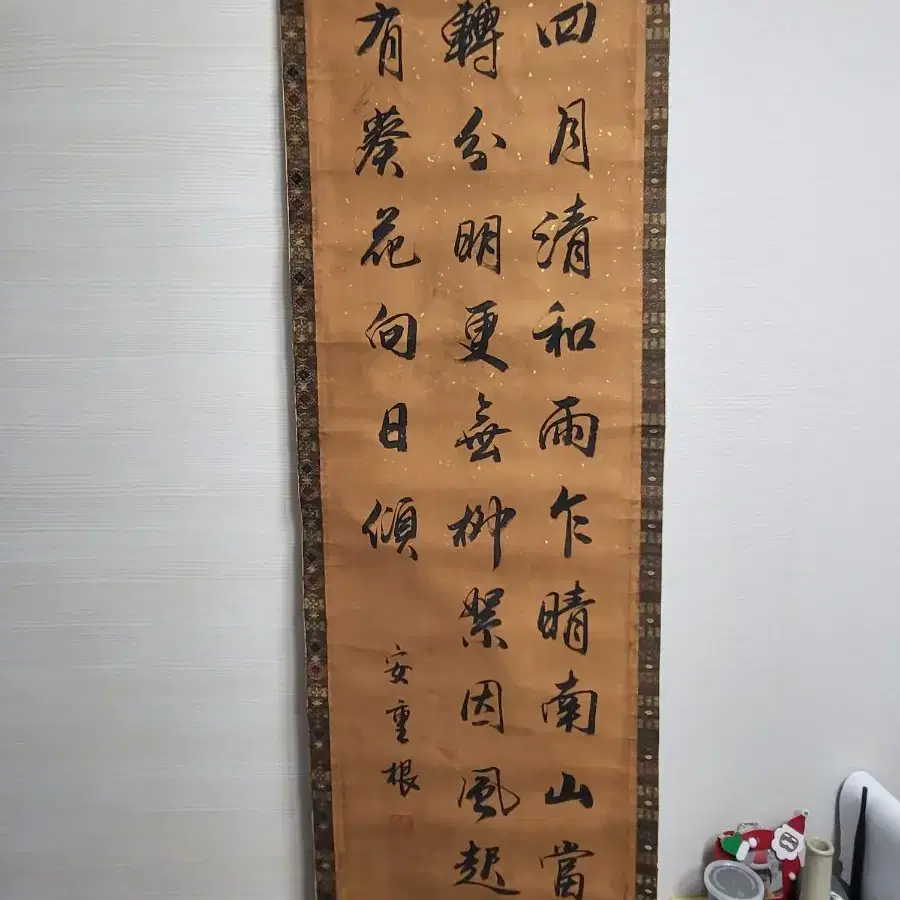 四月清和雨乍晴南山當
轉分明更無柳絮因風起
有葵花向日傾
安重根